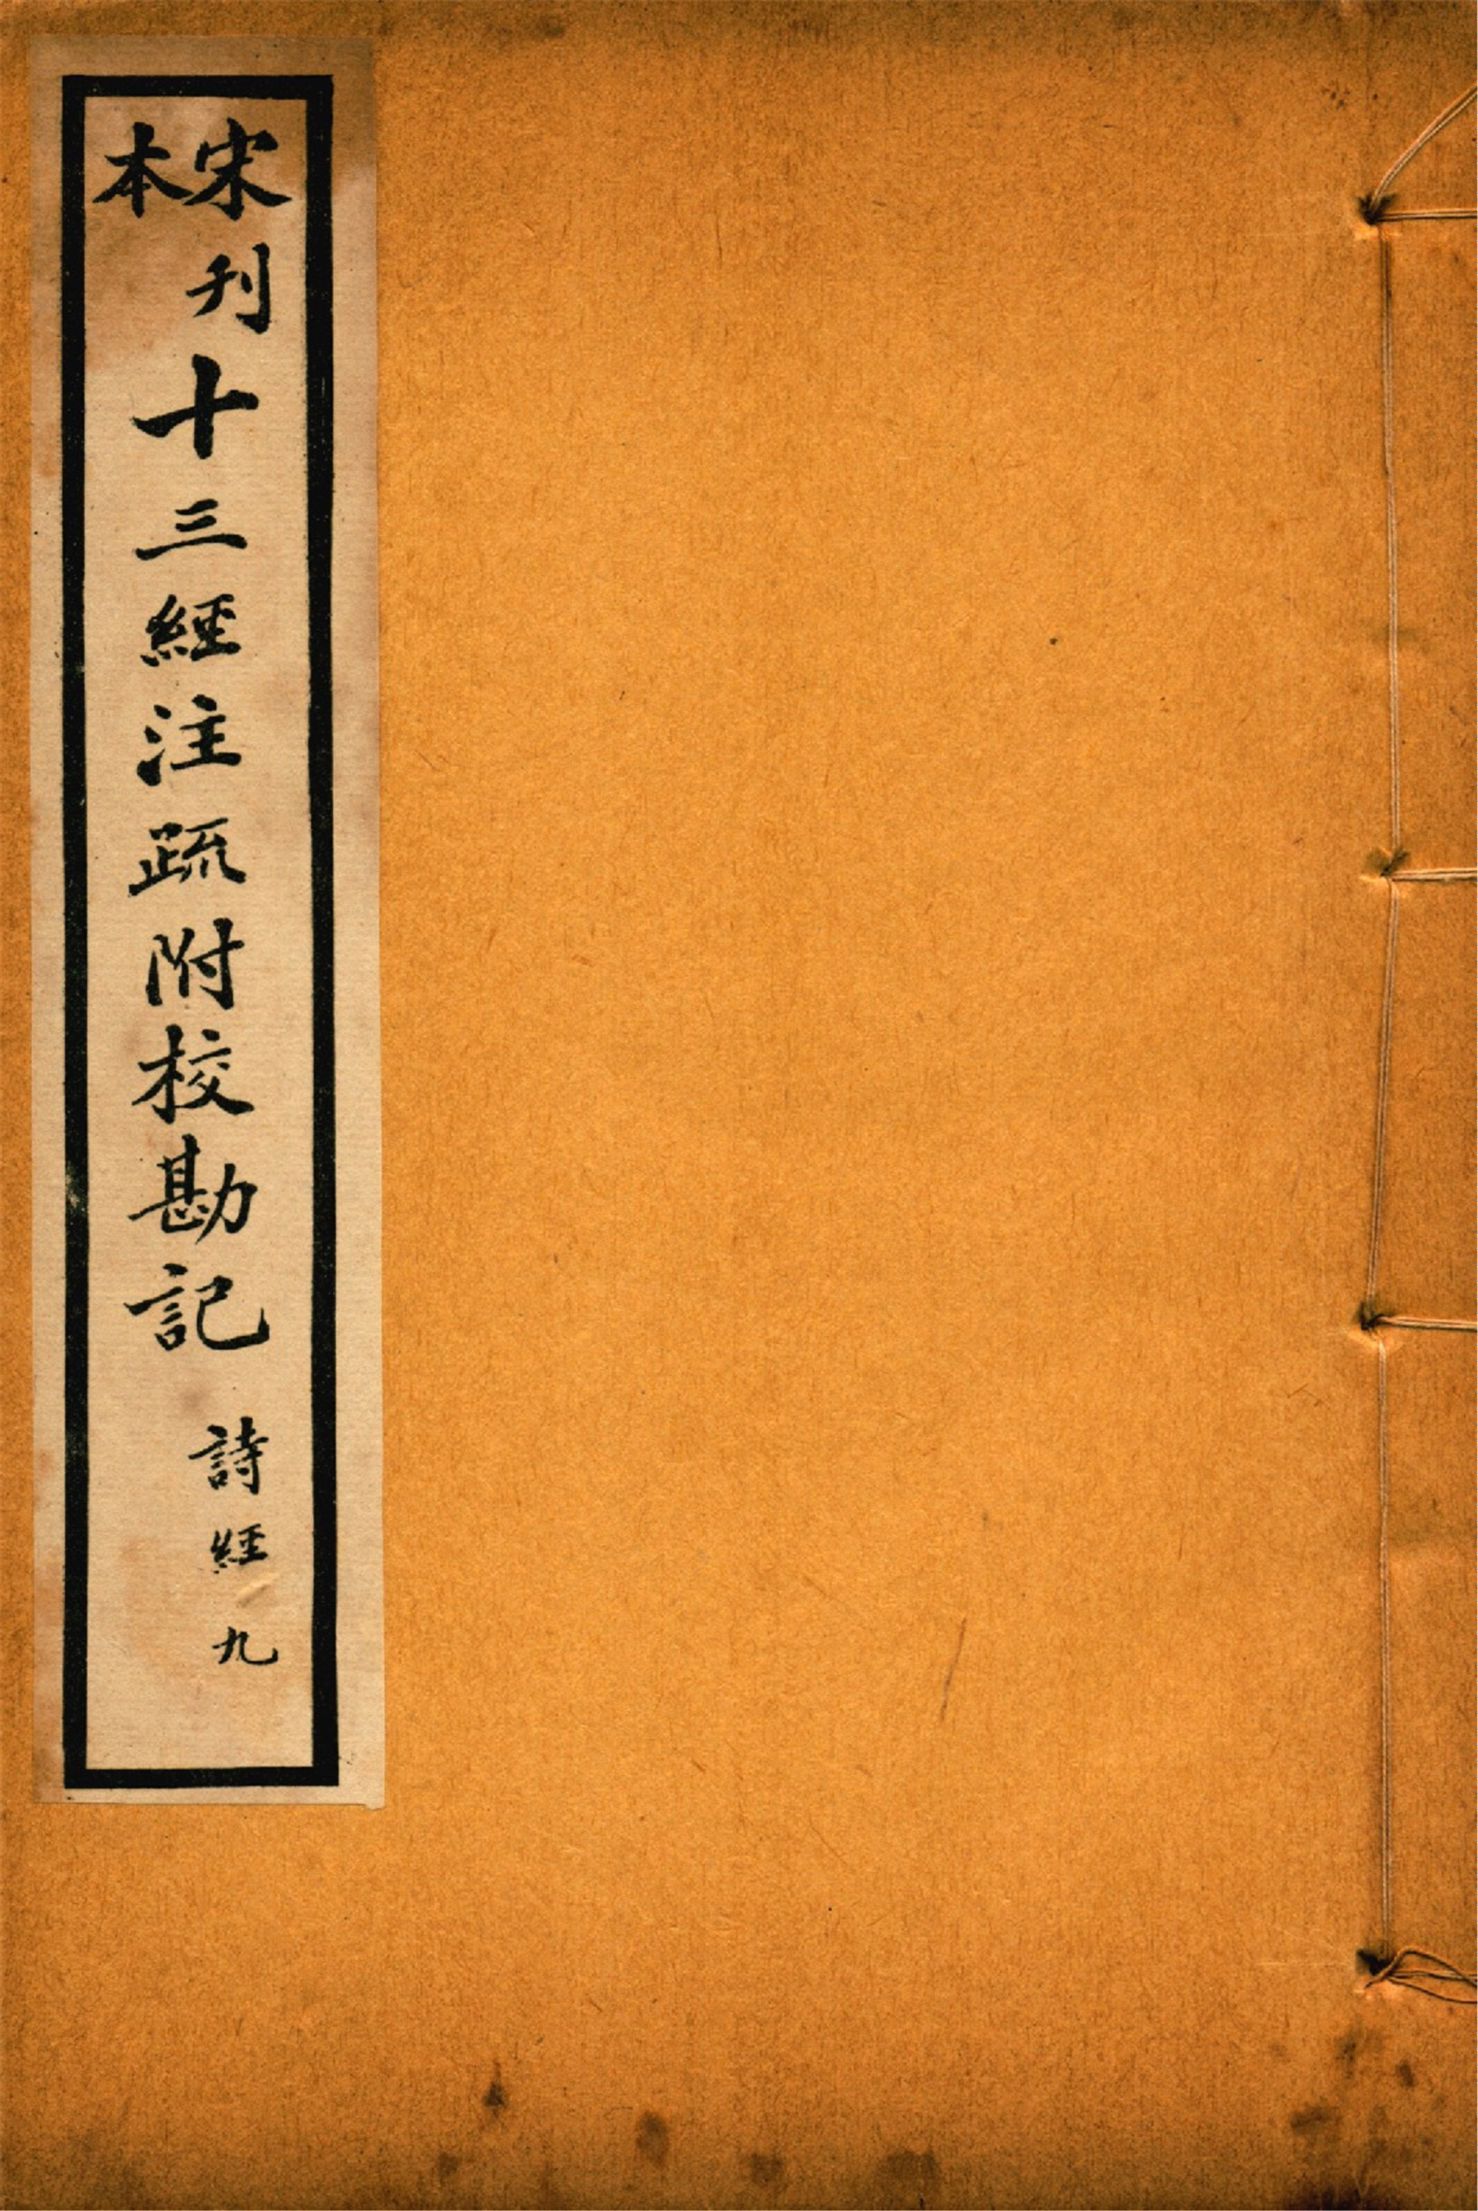 宋刊
本
十三經注疏附校勘記
詩經 九